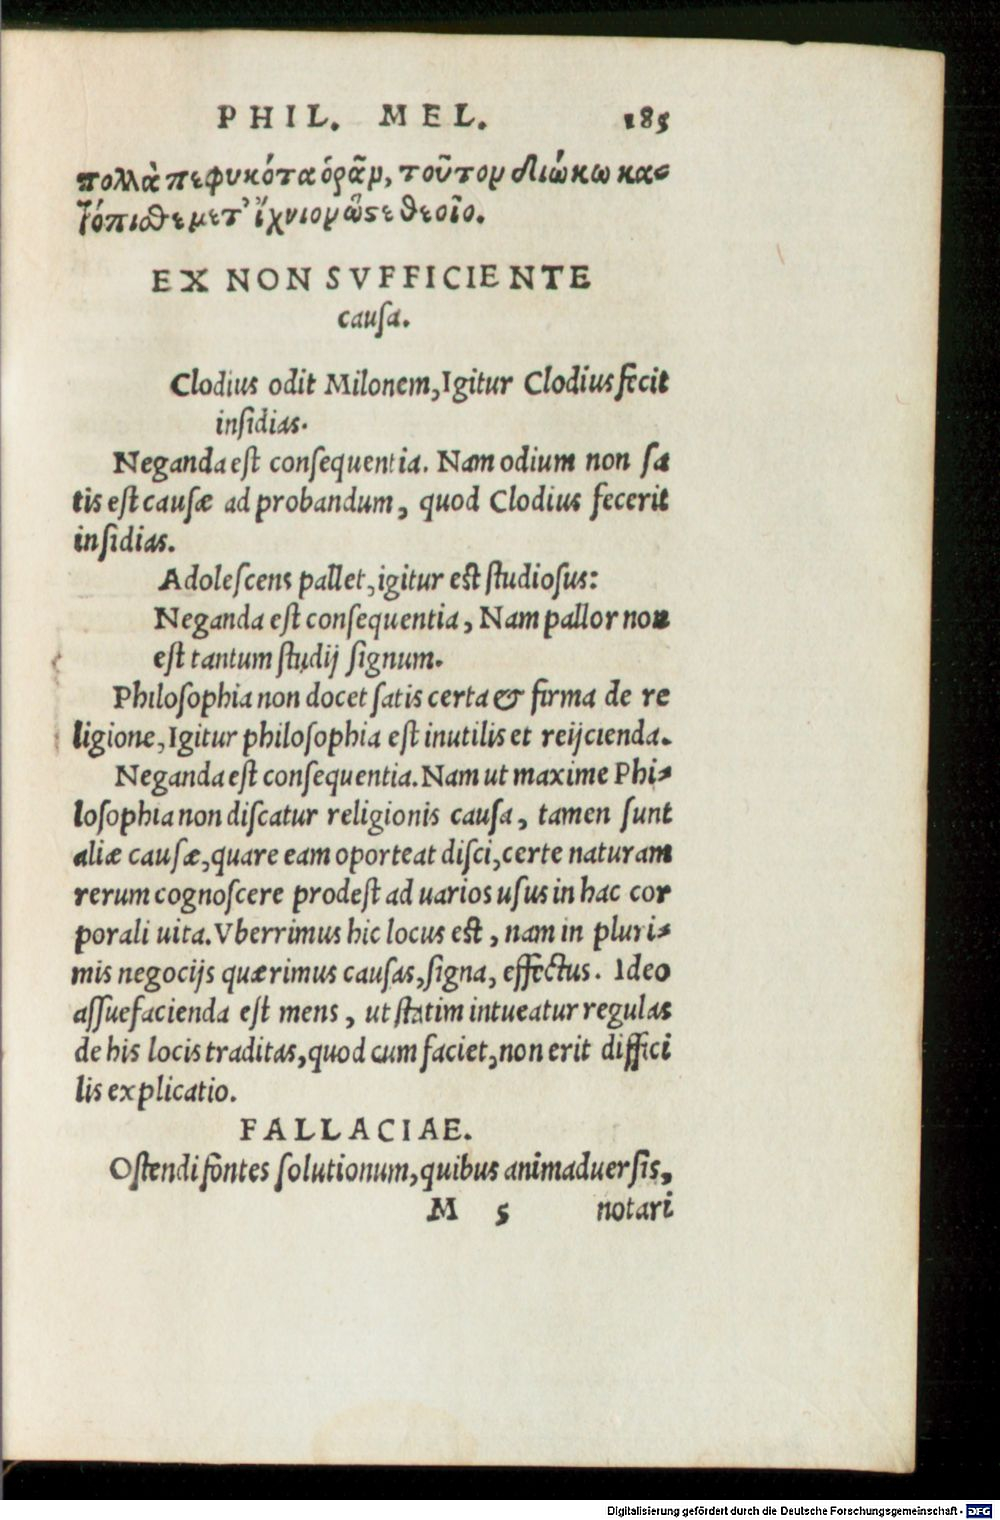 PHIL. MEL. 185
πολλὰ πεφυκότα ὁρᾶν, τοῦτον διώκω κα-
τόπισθε μετ’ ἴχνιον ὥστε θεοῖο.
EX NON SVFFICIENTE
cauſa.
Clodius odit Milonem, Igitur Clodius fecit
inſidias.
Neganda eſt conſequentia. Nam odium non ſa
tis eſt cauſæ ad probandum, quod Clodius fecerit
inſidias.
Adoleſcens pallet, igitur eſt ſtudioſus:
Neganda eſt conſequentia, Nam pallor non
eſt tantum ſtudij ſignum.
Philoſophia non docet ſatis certa & firma de re
ligione, Igitur philoſophia eſt inutilis et reijcienda.
Neganda eſt conſequentia. Nam ut maxime Phi-
loſophia non diſcatur religionis cauſa, tamen ſunt
aliæ cauſæ, quare eam oporteat diſci, certe naturam
rerum cognoſcere prodeſt ad uarios uſus in hac cor
porali uita. Vberrimus hic locus eſt, nam in pluri-
mis negocijs quærimus cauſas, ſigna, effectus. Ideo
aſſuefacienda eſt mens, ut ſtatim intueatur regulas
de his locis traditas, quod cum faciet, non erit diffici
lis explicatio.
FALLACIAE.
Oſtendi fontes ſolutionum, quibus animaduerſis,
M 5 notari
Digitalisierung gefördert durch die Deutsche Forschungsgemeinschaft - DFG